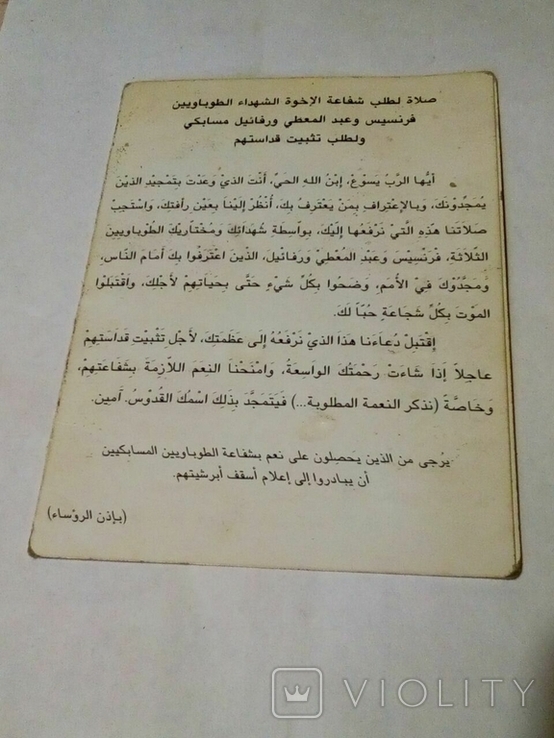 صلاة لطلب شفاعة الإخوة الشهداء الطوباويين
فرنسيس وعبد المعطي ورفائيل مسابكي
ولطلب تثبيت قداستهم
أيُّها الرَّبُّ يسوعَ، إبْنُ اللهِ الحيِّ، أنْتَ الذيْ وَعَدْتَ بتَمجيْدِ الذيْنَ
يُمَجِّدُونَكَ، وَبالإعْتِرافِ بِمَنْ يَعْتَرِفُ بِكَ، أُنْظُرْ إلَيْنَا بعَيْنِ رأفَتِكَ، وَاسْتَجِبْ
صَلاتَنا هَذِهِ الَّتِيْ نَرْفَعُها إلَيْكَ، بوَاسِطَةِ شُهَدَائِكَ وَمُخْتَارِيْكَ الطُوبَاوِيينَ
الثَلاثَةِ، فْرَنْسِيْسَ وَعَبدِ المُعْطِيْ وَرَفَائيلَ، الذينَ اعْتَرَفُوا بِكَ أمَامَ النَّاسِ،
وَمَجَّدُوْكَ فِيْ الأُمَمِ، وَضَحُوا بِكُلِّ شَيْءٍ حَتَّى بِحَيَاتِهِمْ لأَجْلِكَ، وَاقْتَبَلُوْا
المَوْتَ بِكُلِّ شَجَاعَةٍ حُبَّاً لَكَ.
إقْتَبِلْ دُعَاءَنَا هَذا الذيْ نَرْفَعُهُ إلى عَظَمَتِكَ، لأجْلِ تَثْبِيتِ قَدَاسَتِهِمْ
عَاجِلاً إذَا شَاءَتْ رَحْمَتُكَ الوَاسِعَةُ، وَامْنَحْنَا النِعَمَ اللاَّزِمَةَ بِشَفَاعَتِهِمْ،
وَخَاصَّةً (نذكر النعمة المطلوبة...) فَيَتَمَجَّدَ بِذلِكَ اسْمُكَ القُدُّوْسُ. آمين.
يُرجى من الذين يَحصلون على نعم بشفاعة الطوباويين المسابكيين
أن يبادروا إلى إعلام أسقف أبرشيتهم.
(بإذن الرؤساء)
VIOLITY